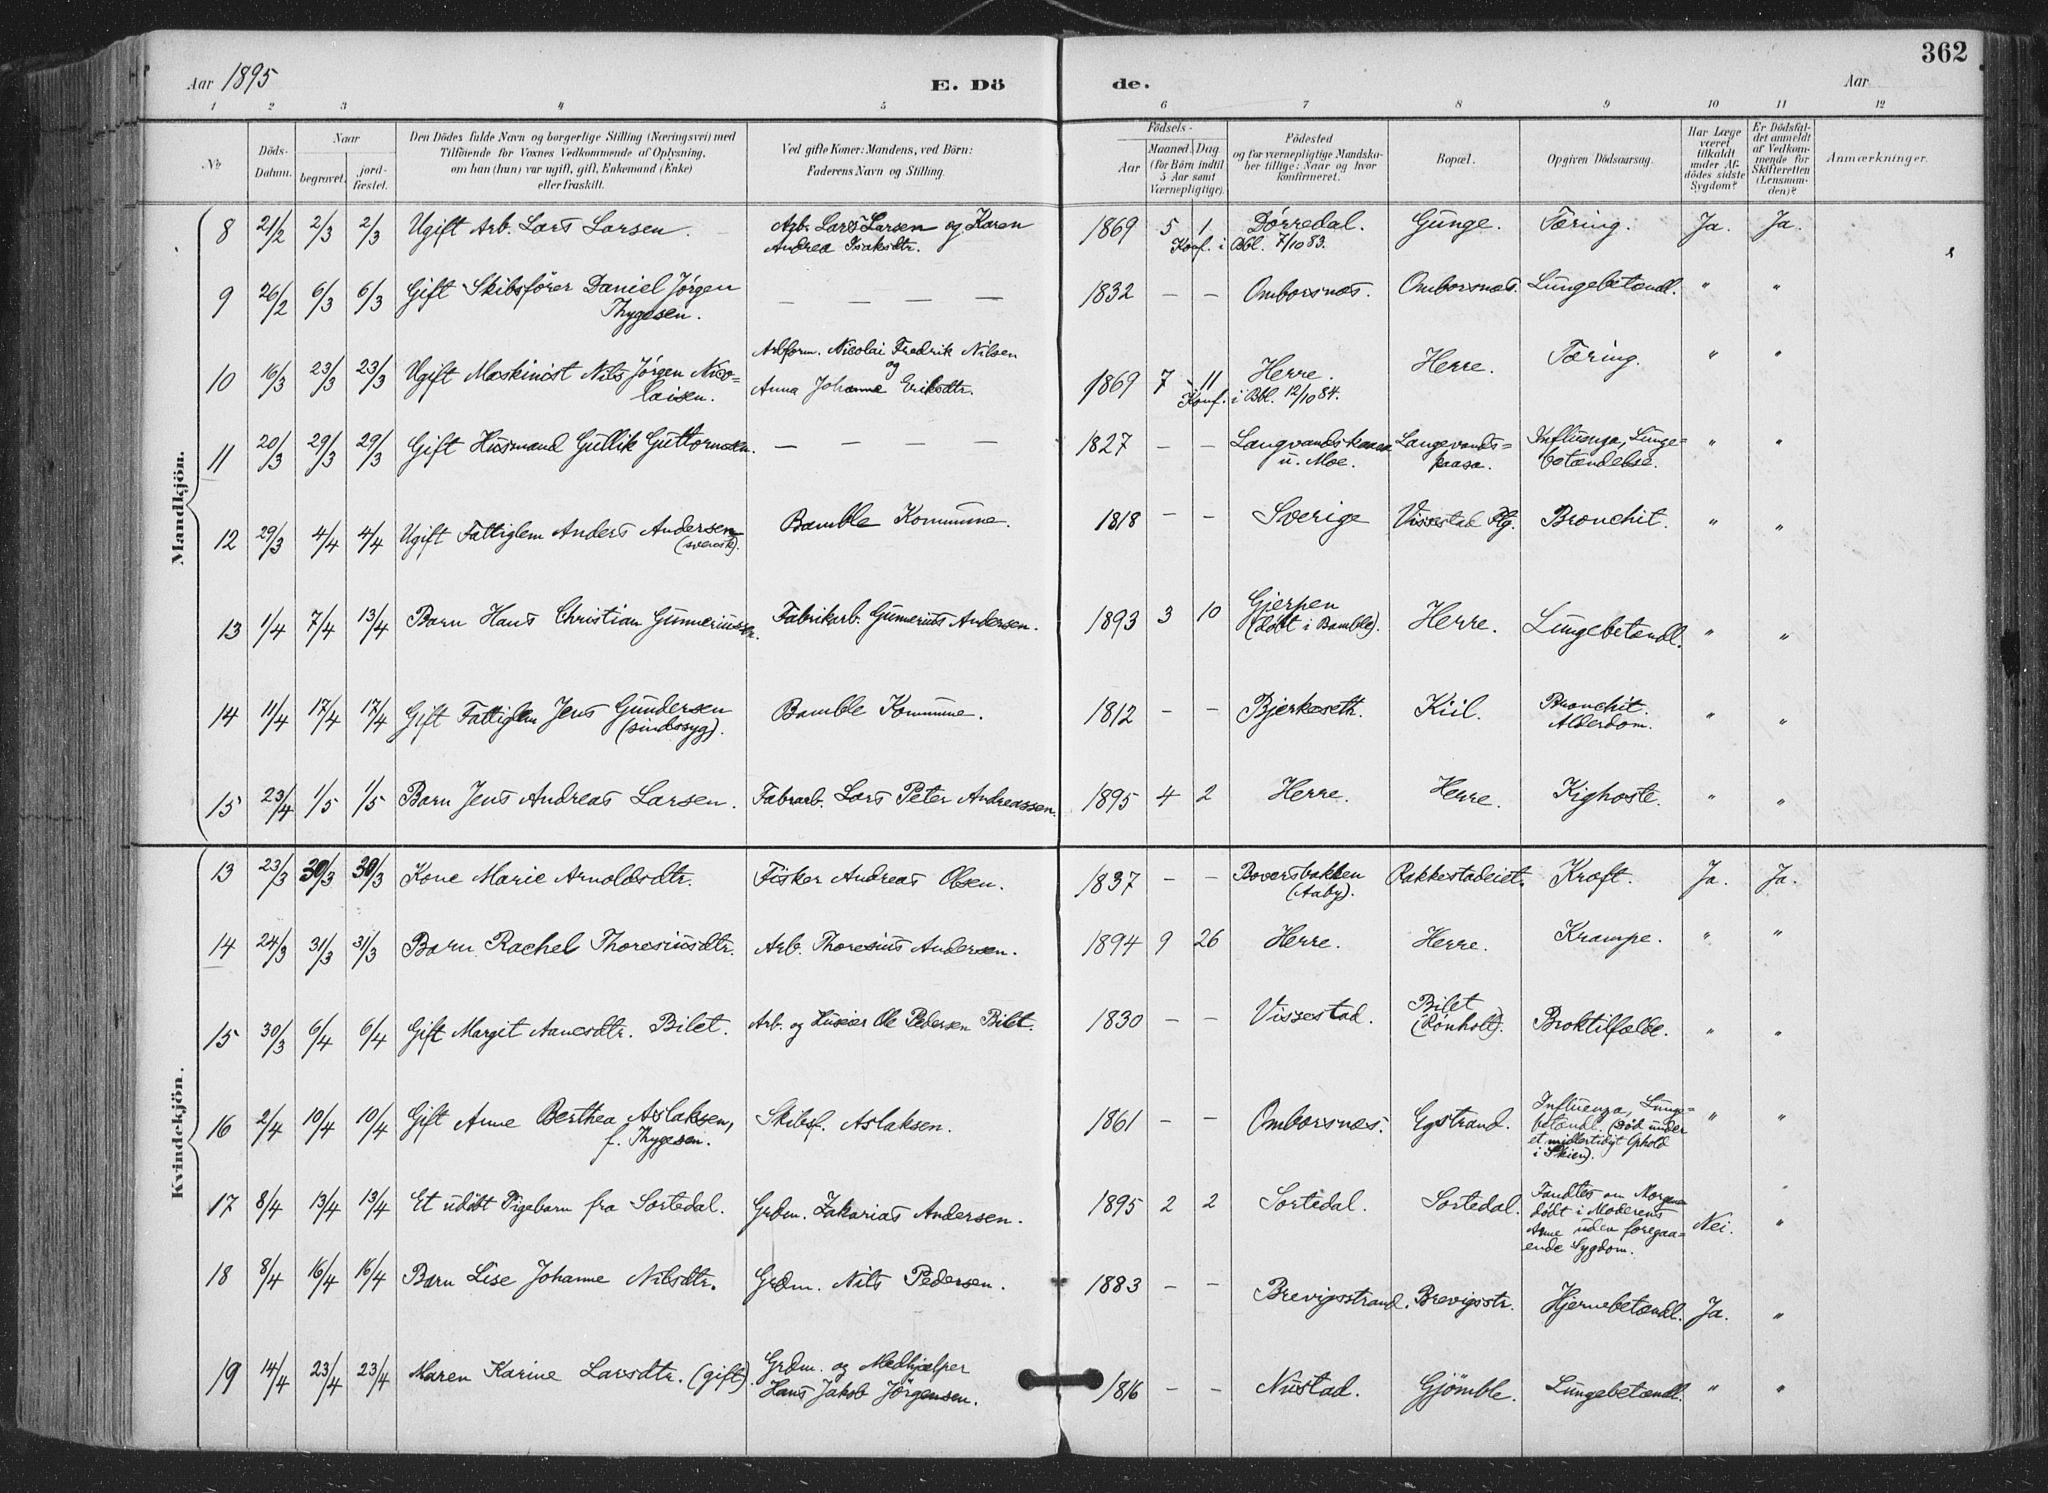 362
Aar 1895
E. Dö
de.
Aar
1 2 3 4 5 6 7 8 9 10 11 12
№
Döds-Datum.
Naar
begravet.
jordfæstet.
Den Dödes fulde Navn og borgerlige Stilling (Næringsvei) med
Tilföiende for Voxnes Vedkommende af Oplysning,
om han (hun) var ugift, gift, Enkemand (Enke)
eller fraskilt.
Ved gifte Koner: Mandens, ved Börn:
Faderens Navn og Stilling.
Födsels-
Aar
Maaned. Dag
(for Börn indtil
5 Aar samt
Værnepligtige).
Födested
og for værnepligtige Mandskaber tillige: Naar og hvor
konfirmeret.
Bopæl.
Opgiven Dödsaarsag.
Har Læge
været
tilkaldt
under Afdödes sidste
Sygdom?
Er Dödsfaldet anmeldt
af Vedkommende for
Skifteretten
(Lensmanden)?
Anmærkninger.
Mandkjön.
8 21/2 2/3 2/3 Ugift Arb. Lars Larsen. Arb. Lars Larsen og Karen 1869 5 1 Dørredal. Gunge. Tæring. Ja. Ja.
Andrea Isaksdtr. Konf. i Bbl. 7/10 83.
9 26/2 6/3 6/3 Gift Skibsfører Daniel Jørgen — — — — 1832 — — Omborsnæs. Omborsnæs. Lungebetændl. " "
Thygesen.
Arbform. Nicolai Fredrik Nilsen
10 16/3 23/3 23/3 Ugift Maskinist Nils Jørgen Nico- og 1869 7 11 Herre. Herre. Tæring. " "
laisen. Anna Johanne Eriksdtr. Konf. i Bbl. 12/10 84.
11 20/3 29/3 29/3 Gift Husmand Gullik Guttormsen. — — — — 1827 — — Langvandskaasa Langevands- Influenza, Lunge- " "
u. Moe. kaasa. betændelse.
12 29/3 4/4 4/4 Ugift Fattiglem Anders Andersen Bamble Kommune. 1818 — — Sverige Vissestad Plg. Bronchit. " "
(svensk).
13 1/4 7/4 13/4 Barn Hans Christian Gunneriussen. Fabrikarb. Gunerius Andersen. 1893 3 10 Gjerpen Herre. Lungebetændl. " "
(døbt i Bamble).
14 11/4 17/4 17/4 Gift Fattiglem Jens Gundersen Bamble Kommune. 1812 — — Bjerkeseth. Kiil. Bronchit. " "
(sindssyg). Alderdom.
15 23/4 1/5 1/5 Barn Jens Andreas Larsen. Fabrarb. Lars Peter Andreassen. 1895 4 2 Herre. Herre. Kighoste. " "
Kvindekjön.
13 23/3 30/3 30/3 Kone Marie Arnoldsdtr. Fisker Andreas Olsen. 1837 — — Boversbakken Rakkestadeiet. Kræft. Ja. Ja.
(Aaby).
14 24/3 31/3 31/3 Barn Rachel Thoresiusdtr. Arb. Thoresius Andersen. 1894 9 26 Herre. Herre. Krampe. " "
15 30/3 6/4 6/4 Gift Margit Aanesdtr. Bilet. Arb. og Huseier Ole Pedersen Bilet. 1830 — — Vissestad. Bilet Broktilfælde. " "
(Rønholt).
16 2/4 10/4 10/4 Gift Anne Berthea Aslaksen, Skibsf. Aslaksen. 1861 — — Omborsnæs. Eystrand. Influenza, Lunge- " "
f. Thygesen. betændl. (Død under
et midlertidigt Ophold
i Skien).
17 8/4 13/4 13/4 Et udøbt Pigebarn fra Sortedal. Grdm. Zakarias Andersen. 1895 2 2 Sortedal. Sortedal. Fandtes om Morgenen "
dødt i Moderens Nei. "
Arme uden foregaa-
ende Sygdom.
18 8/4 16/4 16/4 Barn Lise Johanne Nilsdtr. Grdm. Nils Pedersen. 1883 — — Brevigsstrand. Brevigsstr. Hjernebetændl. Ja. "
19 14/4 23/4 23/4 Maren Karine Larsdtr. (gift). Grdm. og Medhjælper 1816 — — Nustad. Gjømble. Lungebetændl. " "
Hans Jakob Jørgensen.